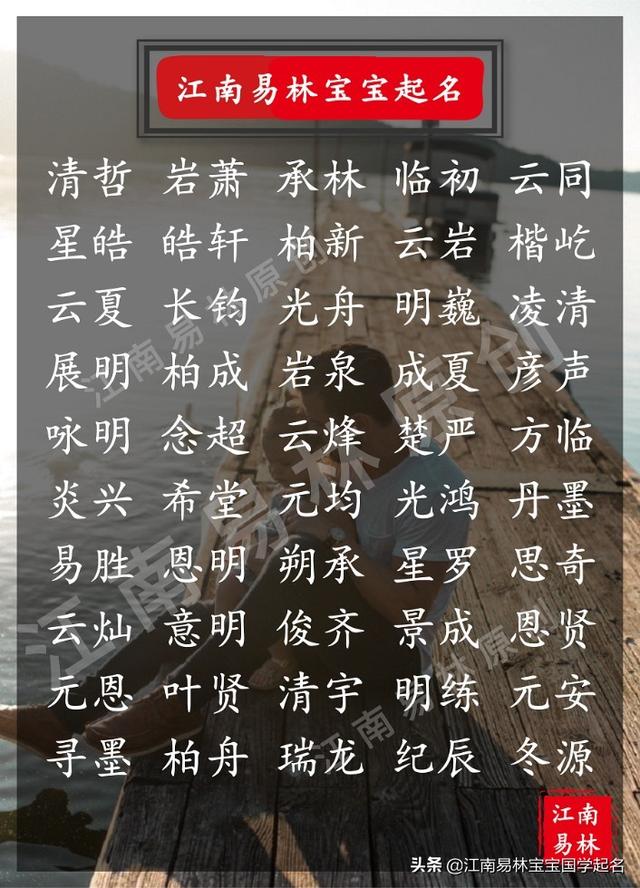 江南易林宝宝起名
清哲 岩萧 承林 临初 云同
星皓 皓轩 柏新 云岩 楷屹
云夏 长钧 光舟 明巍 凌清
展明 柏成 岩泉 成夏 彦声
咏明 念超 云烽 楚严 方临
炎兴 希堂 元均 光鸿 丹墨
易胜 恩明 朔承 星罗 思奇
云灿 意明 俊齐 景成 恩贤
元恩 叶贤 清宇 明练 元安
寻墨 柏舟 瑞龙 纪辰 冬源
江南易林原创
江南易林原创
江南易林原创
江南
易林
头条 @江南易林宝宝国学起名